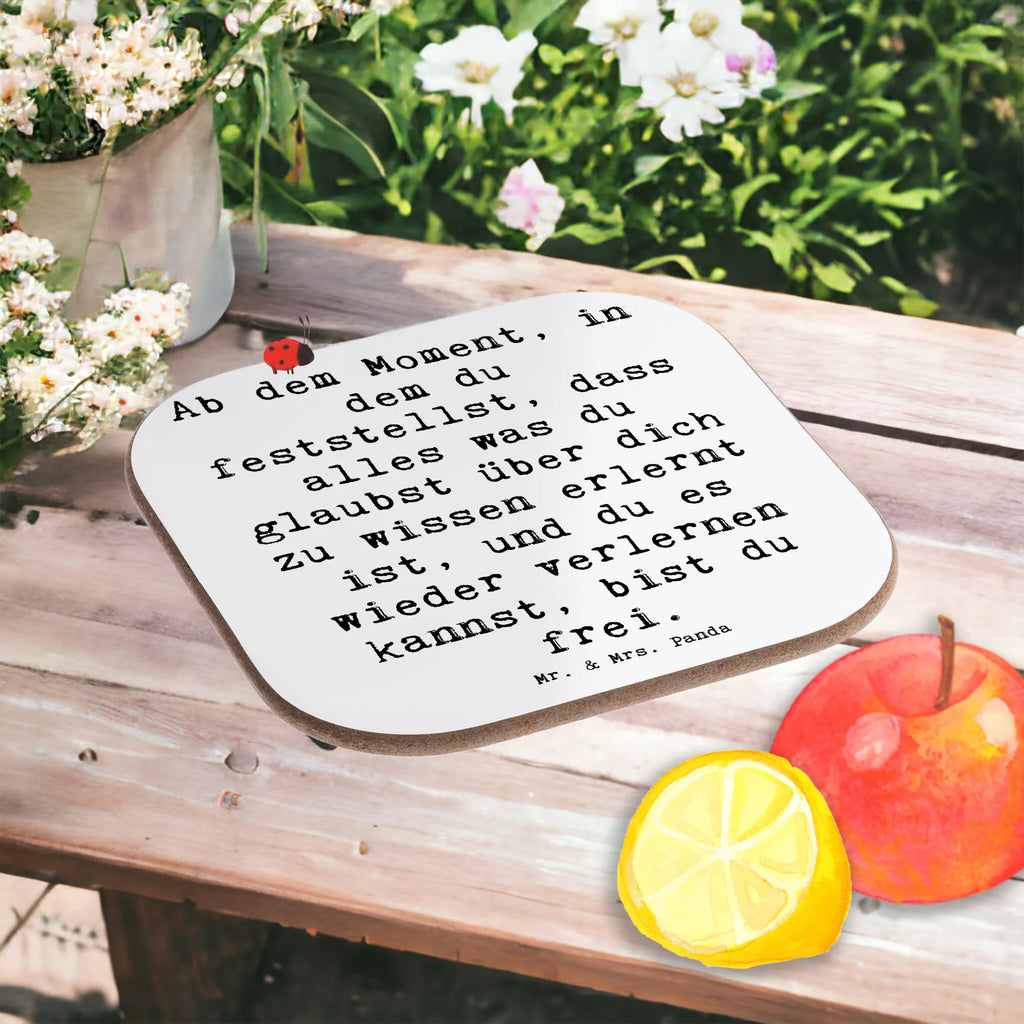 Ab dem Moment, in
dem du
feststellst, dass
alles was du
glaubst über dich
zu wissen erlernt
ist, und du es
wieder verlernen
kannst, bist du
frei.
Mr. & Mrs. Panda